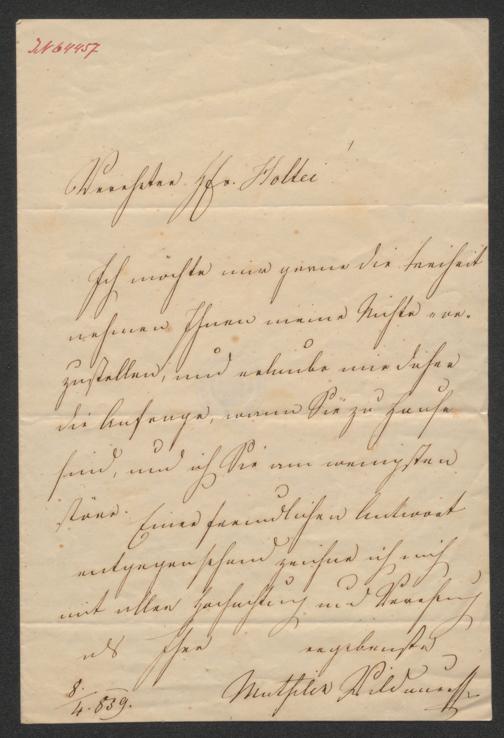 JN 64457
Verehrter Hr. Holtei!
Ich möchte mir gerne die Freiheit
nehmen Ihnen meine Nichte vor-
zustellen, und erlaube mir daher
die Anfrage, wann Sie zu Hause
sind, und ich Sie am wenigsten
störe. Einer freundlichen Antwort
entgegensehend zeichne ich mich
mit aller Hochachtung und Verehrung
als Ihre ergebenste
8./4. 839. Mathilde Wildauer